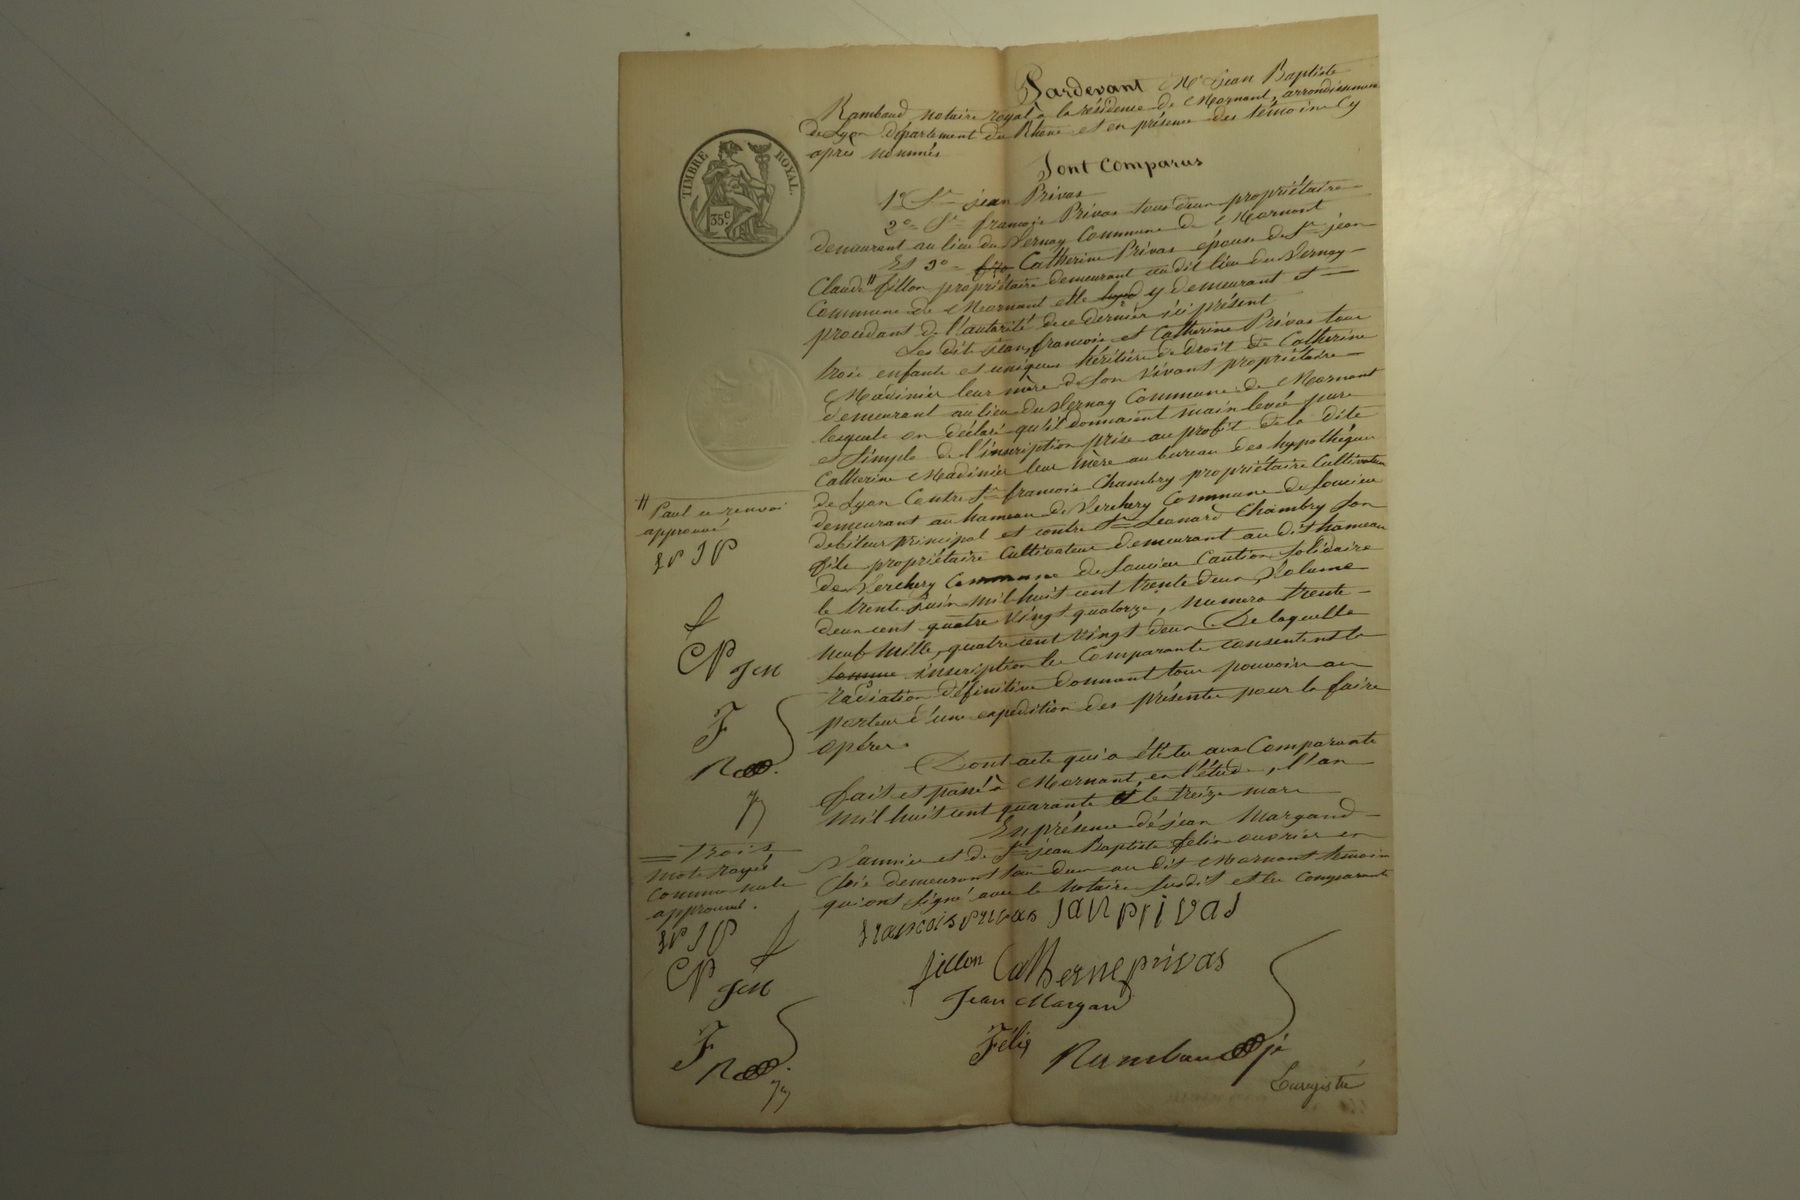 Pardevant Me jean Baptiste
Rambaud notaire royal à la résidence de Mornant, arrondissement
de Lyon département du Rhône et en présence des témoins cy
après nommés
TIMBRE ROYAL.
35c
Sont Comparus
1o Sr jean Privas
2o Sr françois Privas tous deux propriétaires
demeurant au lieu du Vernay Commune de Mornant
Et 3o Catherine Privas épouse de Sr jean
Claude " fillon propriétaire demeurant au dit lieu du Vernay
Commune de Mornant elle y demeurant et
procédant de l'autorité de ce dernier ici présent
Les dits jean, françois et Catherine Privas tous
trois enfants et uniques héritiers de droit de Catherine
Madinier leur mère de son vivant propriétaire
demeurant au lieu du Vernay Commune de Mornant
lesquels on déclaré qu'ils donnaient main levée pure
et simple de l'inscription prise au profit de la dite
Catherine Madinier leur mère au bureau des hypothèques
de Lyon Contre Sr françois Chambry propriétaire Cultivateur
demeurant au hameau de Verchery Commune de Soucieu
débiteur principal et contre Sr Léonard Chambry son
fils propriétaire Cultivateur demeurant au dit hameau
de Verchery Commune de Soucieu Caution solidaire
le trente juin mil huit cent trente deux, Volume
deux cent quatre vingt quatorze, numéro trente
neuf mille, quatre cent vingt deux. De laquelle
somme inscription les Comparants consentent la
radiation définitive donnant tous pouvoirs au
porteur d'une expédition des présentes pour la faire
opérer.
Dont acte qui a été lu aux Comparants
fait et passé à Mornant, en l'étude, l'an
mil huit cent quarante et le treize mars
En présence de jean Margand
et de Sr jean Baptiste félix ouvrier en
soie demeurant tous deux au dit Mornant témoins
qui ont signé avec le notaire susdit et les comparants
" Paul ce renvoi
approuvé
JP
CP
F
R
= trois
mots rayés
comme nuls
approuvés.
JP
CP
F
R
francois privas jan privas
fillon Catherine privas
Jean Margand
Félix
Rambaud
Enregistré